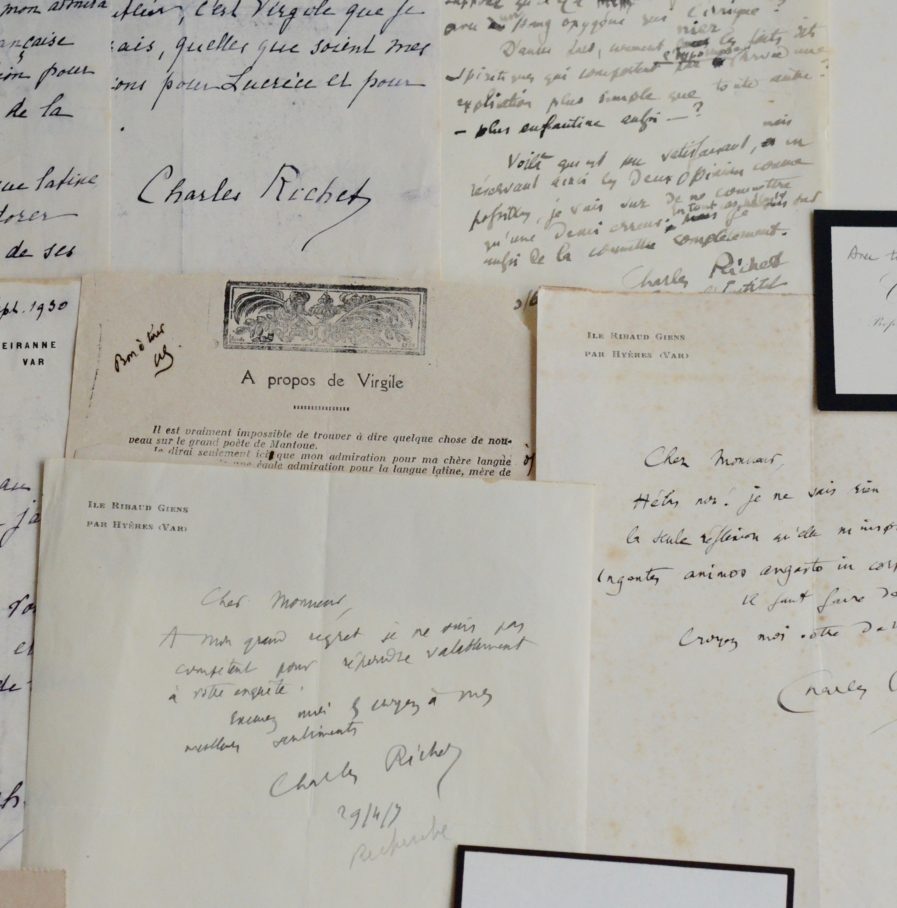 mon admira
ançaise
ion pour
de la
que latine
dorer
de ses
c'est Virgile que je
ais, quelles que soient mes
ons pour Lucrèce et pour
Charles Richet
oxygène
nier
les faits
spiritiques qui comportent
explication plus simple que toute autre
— plus enfantine aussi — ?
mais
Voilà qui est peu satisfaisant, en
réservant ainsi les deux opinions comme
possibles, je suis sûr de ne commettre
qu'une demi erreur.
aussi de la commettre complètement.
Charles Richet
ept. 1930
EIRANNE
VAR
Bon à tirer
A propos de Virgile
Il est vraiment impossible de trouver à dire quelque chose de nou-
veau sur le grand poète de Mantoue.
Je dirai seulement ici que mon admiration pour ma chère langue
une égale admiration pour la langue latine, mère de
ILE RIBAUD GIENS
PAR HYÈRES (VAR)
Cher Monsieur,
Hélas non! je ne sais rien
la seule réflexion qu'elle m'inspi
Ingentes animos angusto in corp
Il faut faire de
Croyez moi votre dev
Charles
ILE RIBAUD GIENS
PAR HYÈRES (VAR)
Cher Monsieur,
A mon grand regret je ne suis pas
compétent pour répondre valablement
à votre enquête.
Excusez moi & croyez à mes
meilleurs sentiments
Charles Richet
29/4/
Recherche